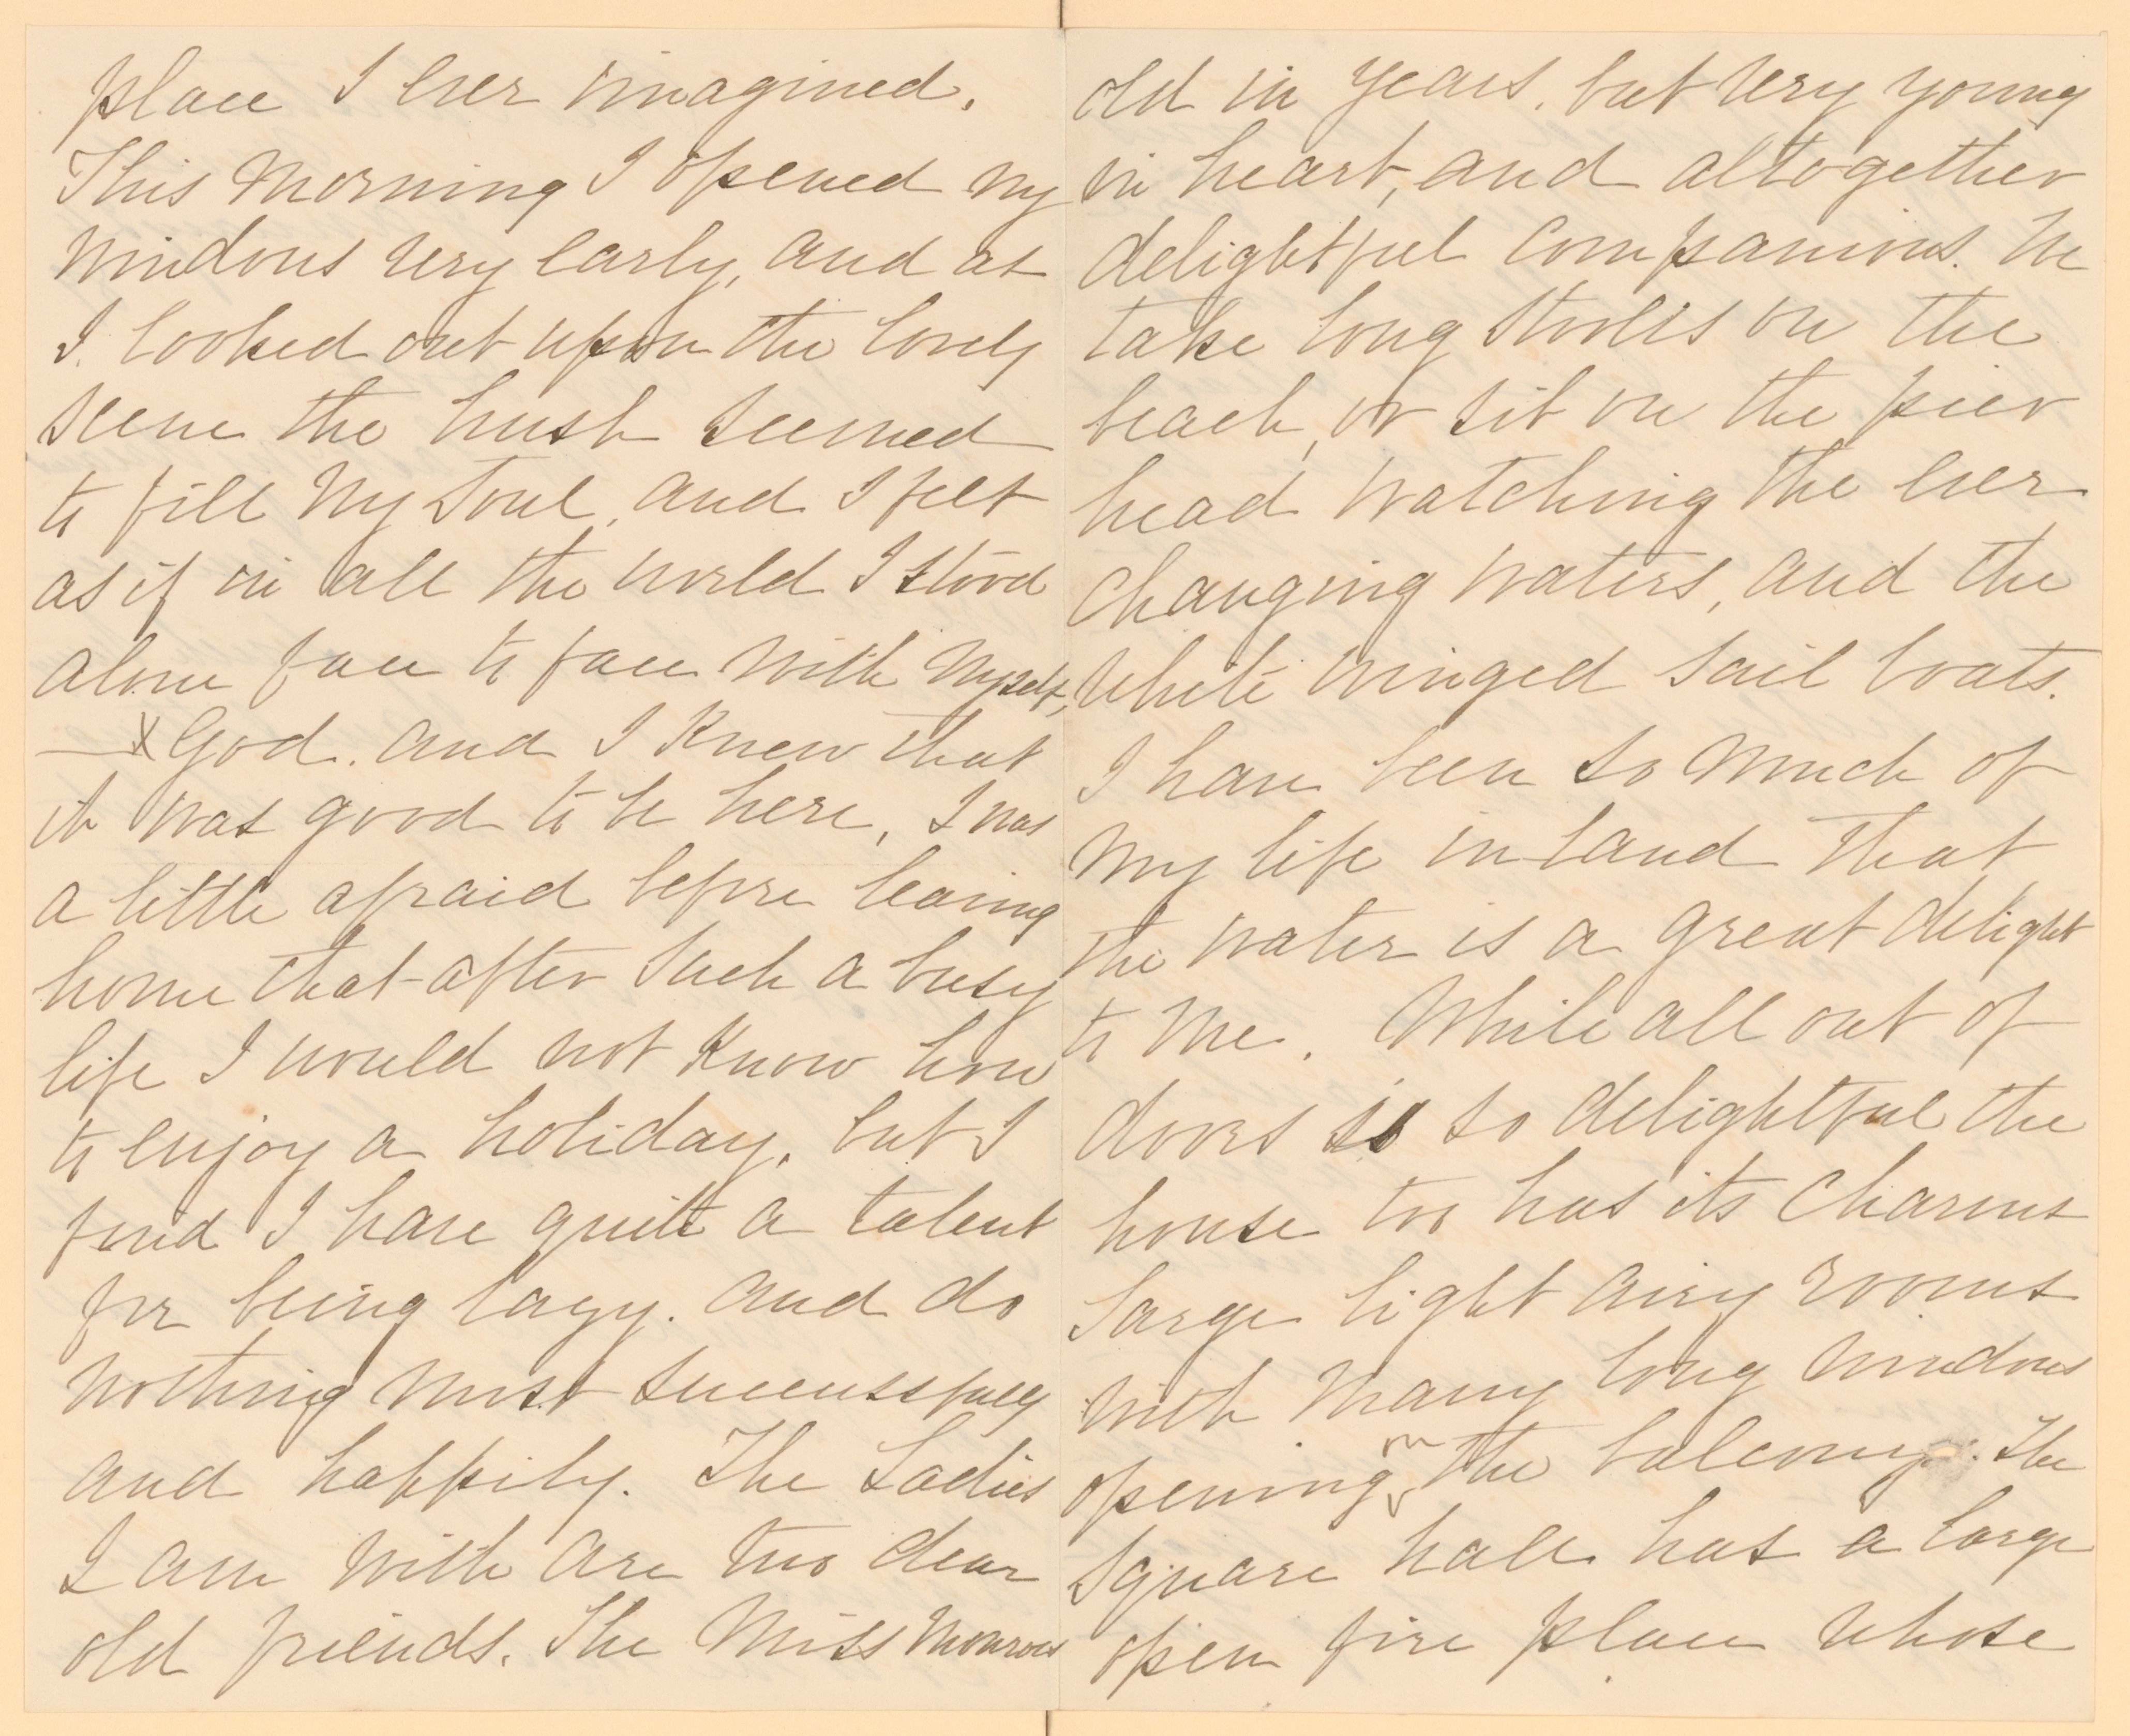 place I ever imagined.
This morning I opened my
windows very early, and as
I looked out upon the lovely
scene the hush seemed
to fill my soul, and I felt
as if in all the world I stood
alone face to face with myself,
— & God. and I knew that
it was good to be here, I was
a little afraid before leaving
home that after such a busy
life I would not know how
to enjoy a holiday, but I
find I have quite a talent
for being lazy. and do
nothing most successfully
and happily. The Ladies
I am with are two dear
old friends. The Miss Monroes
old in years, but very young
in heart, and altogether
delightful companions. We
take long strolls on the
beach, or sit on the pier
head watching the ever
changing waters, and the
white winged sail boats.
I have been so much of
my life in land that
the water is a great delight
to me. While all out of
doors is so delightful the
house too has its charms
large light airy rooms
with many long windows
opening on the balcony. The
square hall has a large
open fire place whose